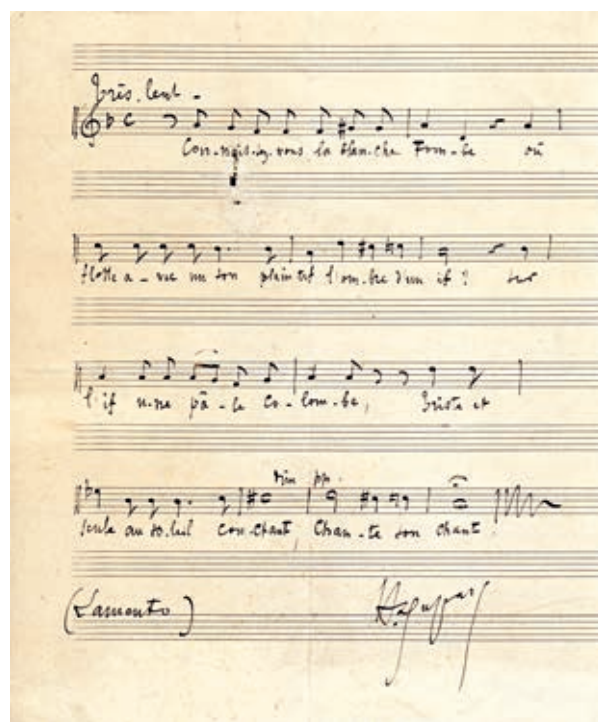 Très lent -
Con-nais-ez vous la blan-che Tom-be où
flotte a-vec un son plaintif l'om-bre d'un if? Sur
l'if u-ne pâ-le co-lom-be, Triste et
dim pp.
seule au so-leil couchant, Chan-te son chant.
(Lamento) H. Duparc